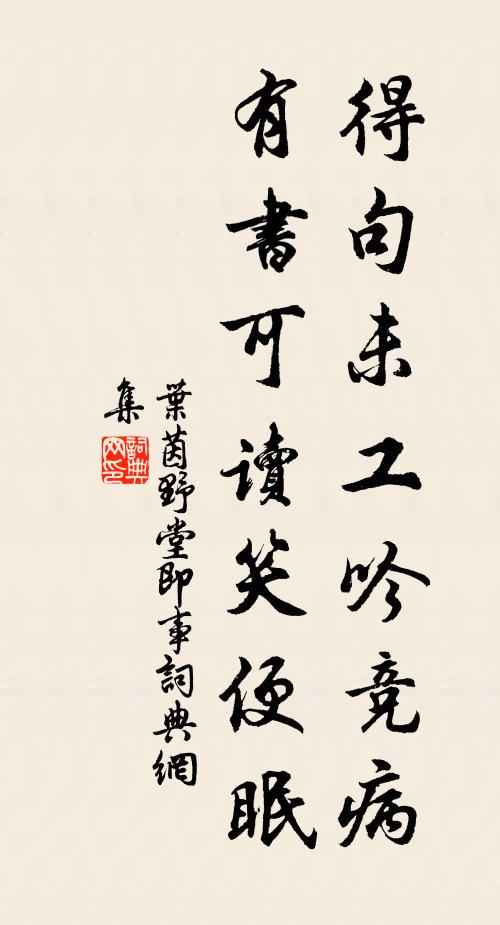 得句未工吟競病
有書可讀笑便眠
葉茵野堂即事詞典網
集
詞典網印